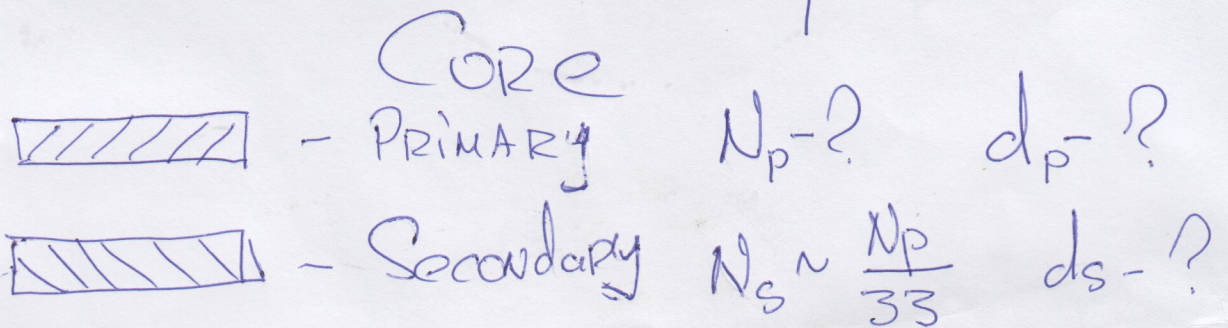 CORE
- PRIMARY Np-? dp-?
- Secondary Ns ~ Np/33 ds-?